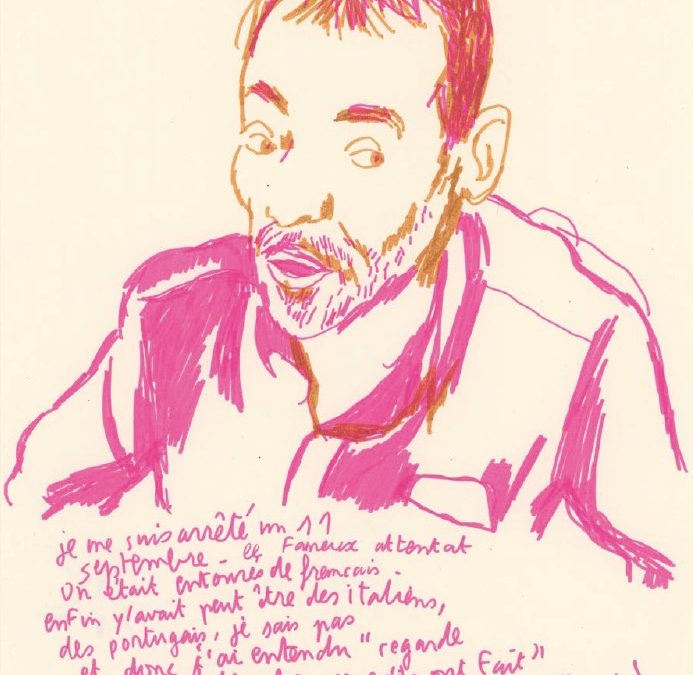 je me suis arrêté un 11
septembre - le fameux attentat
on était entourés de francais.
enfin y'avait peut être des italiens,
des portugais, je sais pas
et donc j'ai entendu " regarde
ont fait"